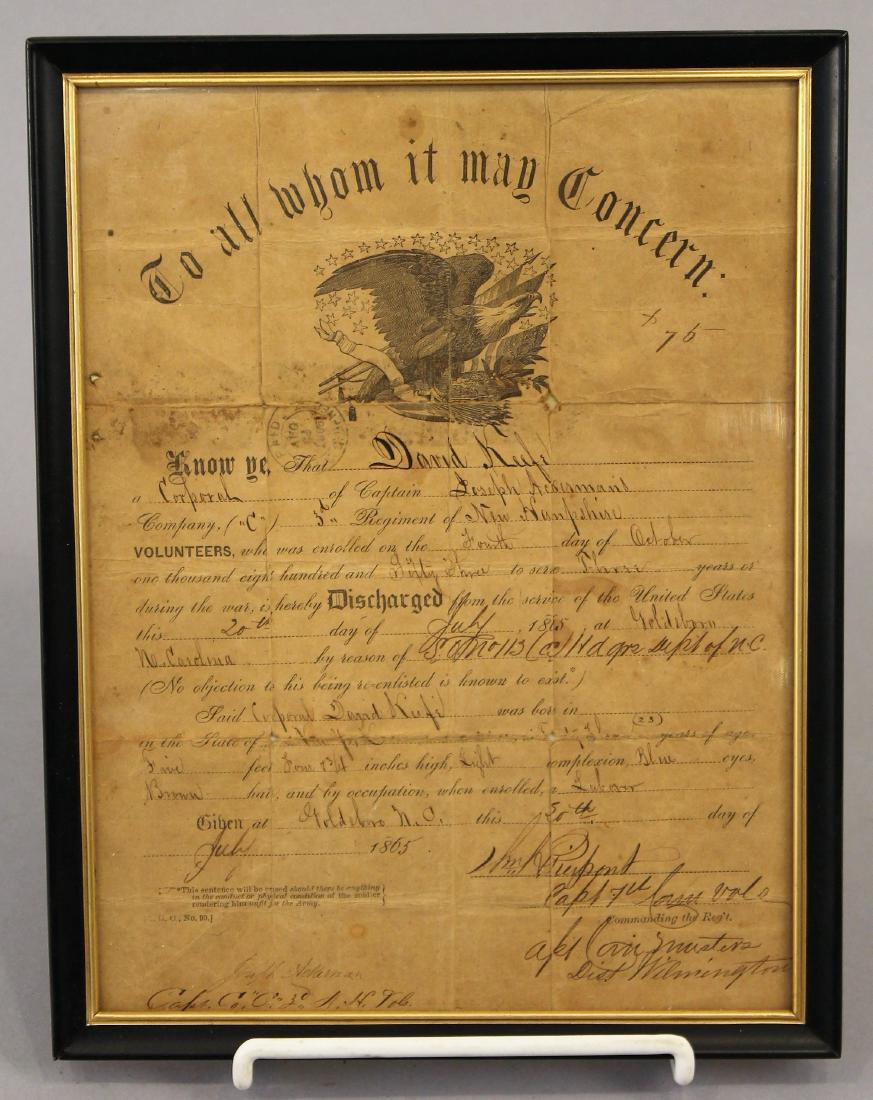 To all whom it may Concern:
x
75
PAID
AUG
Know ye, That David Keefe
a Corporal of Captain Joseph Ackerman's
Company, ("C") 3d Regiment of New Hampshire
VOLUNTEERS, who was enrolled on the Fourth day of October
one thousand eight hundred and Sixty Three to serve Three years or
during the war, is hereby Discharged from the service of the United States
this 20th day of July, 1865, at Goldsboro
No. Carolina by reason of S.O. No 113 (c.s.) Hd qrs Dept of N.C.
(No objection to his being re-enlisted is known to exist.*)
Said Corporal David Keefe was born in
in the State of New York (23) years of age,
Five feet Four 3/4 inches high, Light complexion, Blue eyes,
Brown hair, and by occupation, when enrolled, a Laborer
Given at Goldsboro N.C. this 20th day of
July 1865.
Pierpont
Capt 7th Conn Vols
Commanding the Reg't.
Com Musters
Dist Wilmington
*This sentence will be erased should there be anything
in the conduct or physical condition of the soldier
rendering him unfit for the Army.
G. O., No. 99.]
Joseph Ackerman
Capt. Co. "C" 3d N. H. Vols.